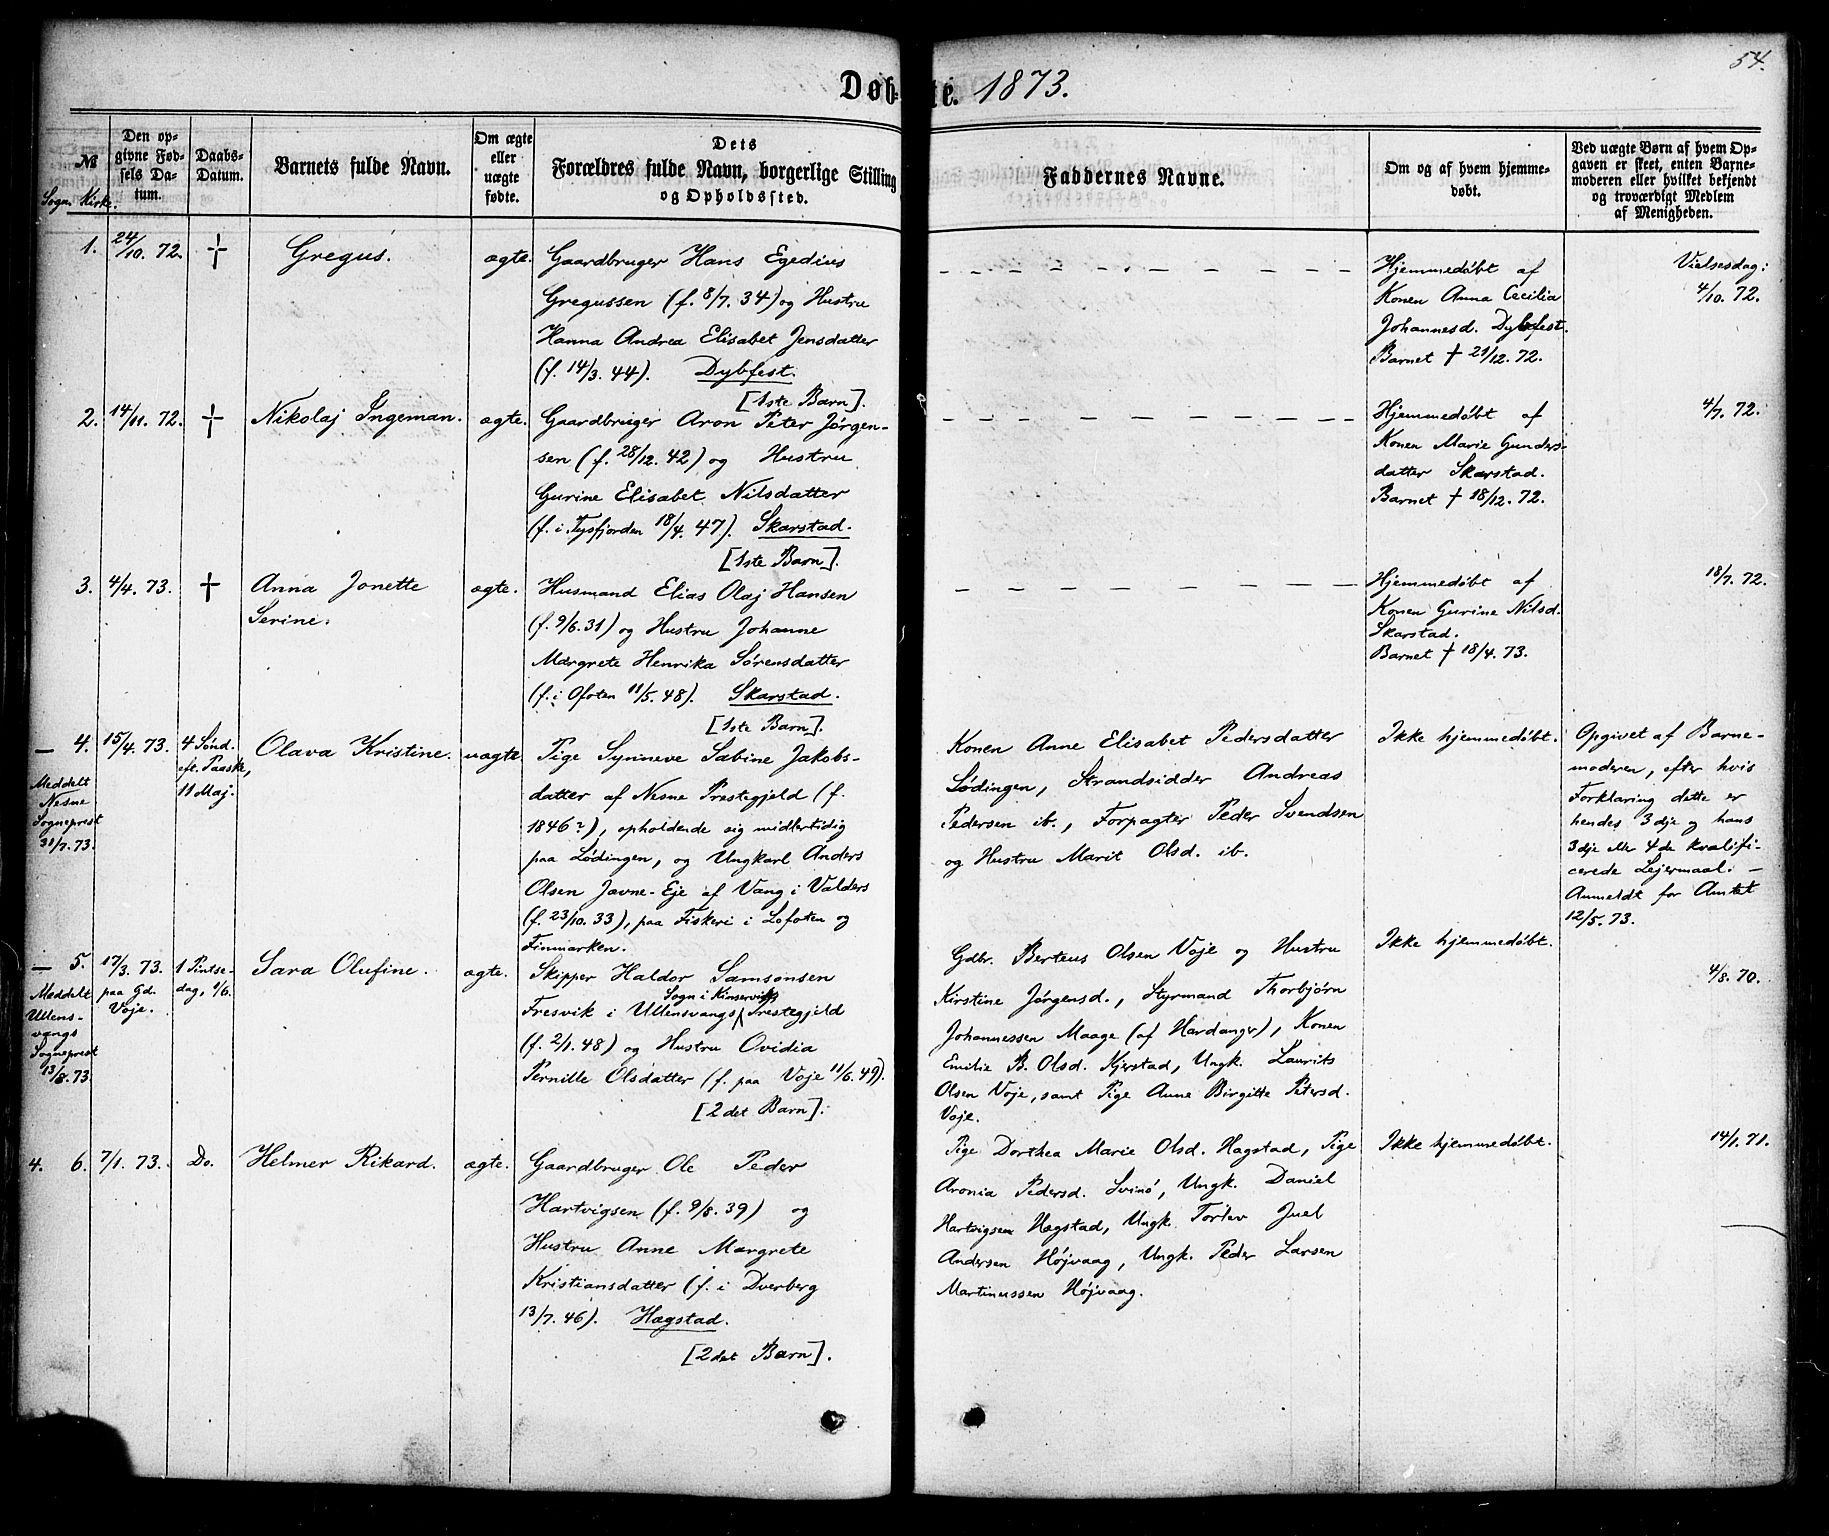 54.
Døb- te. 1873.
№
Sogn. Kirk.
Den op-
givne Fød-
sels Da-
tum.
Daabs-
Datum.
Barnets fulde Navn.
Om ægte
eller
uægte
fødte.
Dets
Forældres fulde Navn, borgerlige Stilling
og Opholdssted.
Faddernes Navne.
Om og af hvem hjemme-
døbt.
Ved uægte Børn af hvem Op-
gaven er skeet, enten Barne-
moderen eller hvilket bekjendt
og troværdigt Medlem
af Menigheden.
1. 24/10. 72. † Gregus. ægte.
Gaardbruger Hans Egedius
Gregussen (f. 8/7. 34) og Hustru
Hanna Andrea Elisabet Jensdatter
(f. 14/3. 44). Dybfest.
[1ste Barn].
Hjemmedøbt af
Konen Anna Cecilia
Johannesd. Dybfest.
Barnet † 21/12. 72.
Vielsesdag:
4/10. 72.
2. 14/11. 72. † Nikolaj Ingeman. ægte.
Gaardbruger Aron Peter Jørgen-
sen (f. 28/12. 42) og Hustru
Gurine Elisabet Nilsdatter
(f. i Tysfjorden 18/4. 47). Skarstad.
[1ste Barn].
Hjemmedøbt af
Konen Marie Gunders-
datter Skarstad.
Barnet † 18/12. 72.
4/7. 72.
3. 4/4. 73. † Anna Jonette
Serine.
ægte.
Husmand Elias Olaj Hansen
(f. 9/6. 31) og Hustru Johanne
Margrete Henrika Sørensdatter
(f. i Ofoten 11/5. 48). Skarstad.
[1ste Barn].
Hjemmedøbt af
Konen Gurine Nilsd.
Skarstad.
Barnet † 18/4. 73.
18/7. 72.
— 4. 15/4. 73.
Meddelt
Nesne
Sogneprest
31/7. 73.
4 Sønd.
eft. Paaske,
11 Maj.
Olava Kristine. uægte.
Pige Synneve Sabine Jakobs-
datter af Nesne Prestegjeld (f.
1846?), opholdende sig midlertidig
paa Lødingen, og Ungkarl Anders
Olsen Javne-Eje af Vang i Valders
(f. 23/10. 33), paa Fiskeri i Lofoten og
Finmarken.
Konen Anne Elisabet Pedersdatter
Lødingen, Strandsidder Andreas
Pedersen ib., Forpagter Peder Svendsen
og Hustru Marit Olsd. ib.
Ikke hjemmedøbt.
Opgivet af Barne-
moderen, efter hvis
Forklaring dette er
hendes 3dje og hans
3dje eller 4de kvalifi-
cerede Lejermaal. —
Anmeldt for Amtet
12/5. 73.
— 5. 17/3. 73.
paa Gd.
Voje.
Meddelt
Ullens-
vangs
Sogneprest
13/8. 73.
1 Pintse-
dag, 1/6.
Sara Olufine. ægte.
Skipper Haldor Samsonsen
Sogn i Kinserviks
Fresvik i Ullensvangs Prestegjeld
(f. 2/1. 48) og Hustru Ovidia
Pernille Olsdatter (f. paa Voje 11/6. 49).
[2det Barn].
Gdbr. Berteus Olsen Voje og Hustru
Kirstine Jørgensd., Styrmand Thorbjørn
Johannessen Maage (af Hardanger), Konen
Emilie B. Olsd. Kjerstad, Ungk. Laurits
Olsen Voje, samt Pige Anne Birgitte Petersd.
Voje.
Ikke hjemmedøbt.
4/8. 70.
4. 6. 7/1. 73. Do. Helmer Rikard. ægte.
Gaardbruger Ole Peder
Hartvigsen (f. 9/8. 39) og
Hustru Anne Margrete
Kristiansdatter (f. i Dverberg
13/7. 46). Hægstad.
[2det Barn].
Pige Dorthea Marie Olsd. Hagstad, Pige
Aronia Pedersd. Svinø, Ungk. Daniel
Hartvigsen Hægstad, Ungk. Torlev Juel
Andersen Højvaag, Ungk. Peder Larsen
Martinussen Højvaag.
Ikke hjemmedøbt.
14/1. 71.